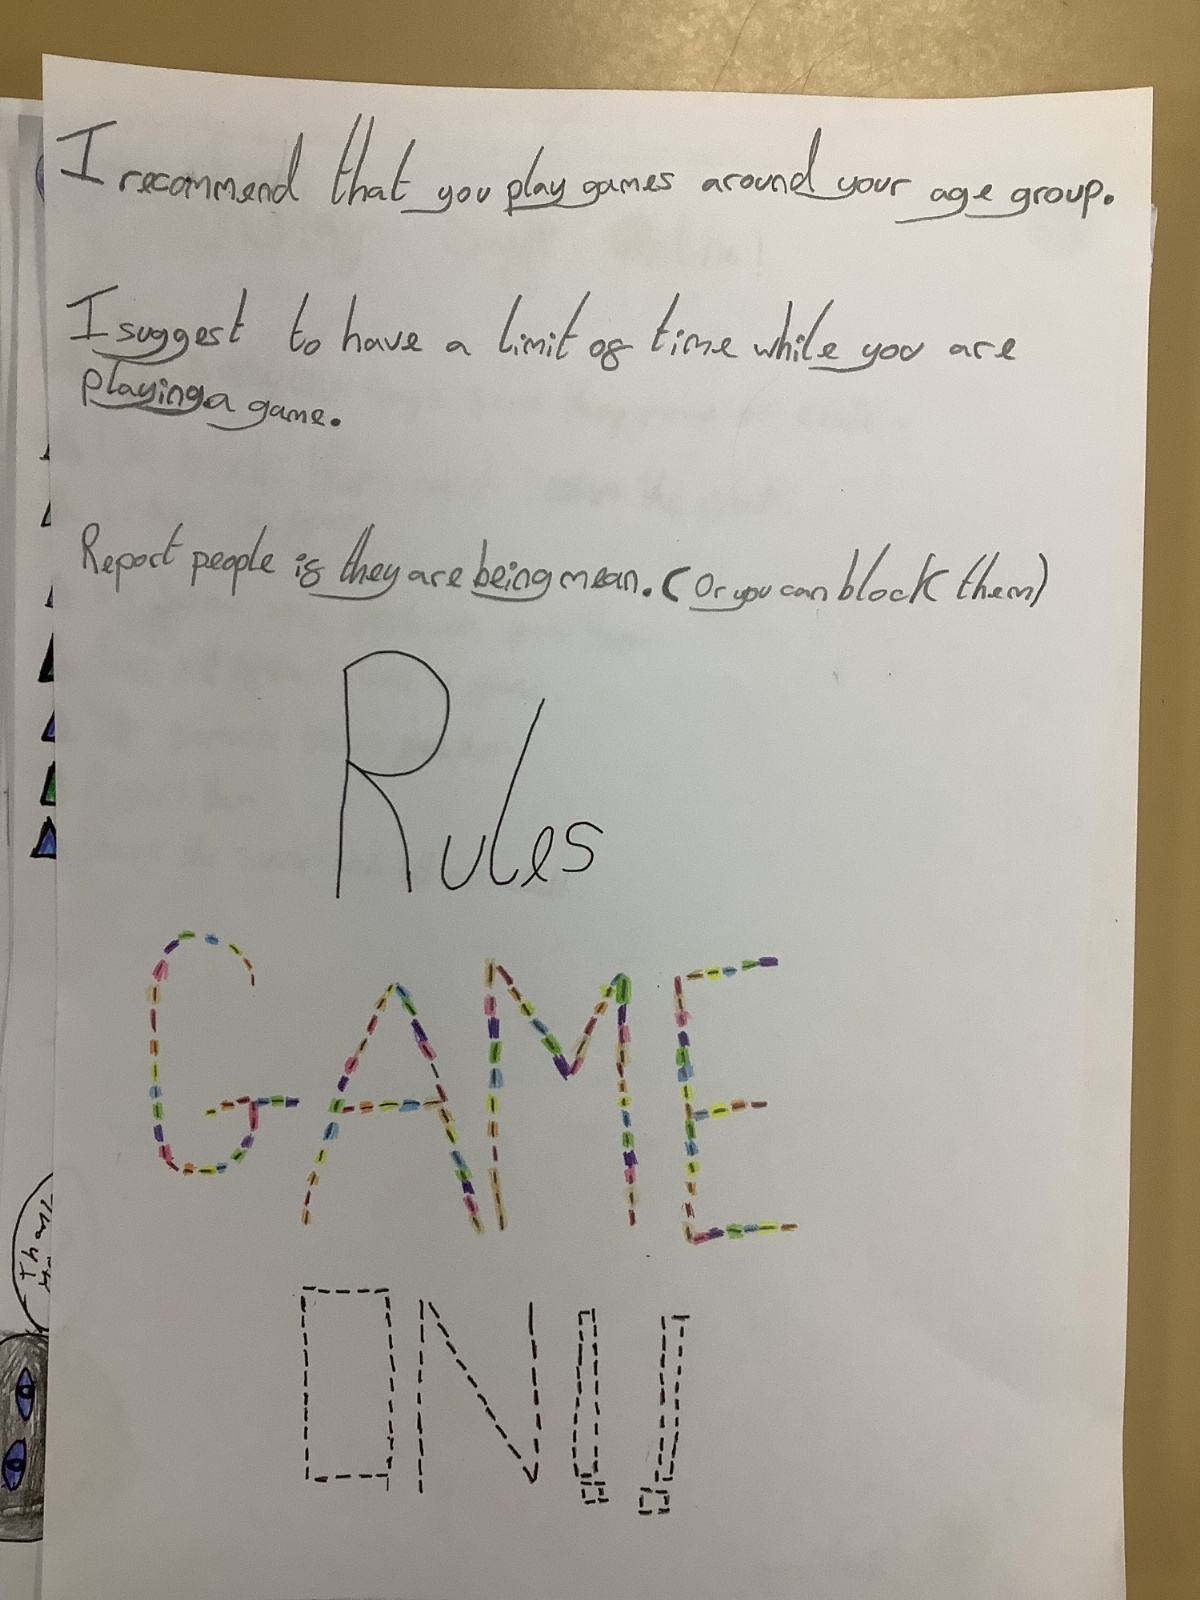 I recommend that you play games around your age group.
I suggest to have a limit of time while you are
playing a game.
Report people if they are being mean. (Or you can block them)
Rules
GAME
ON!!
Thank